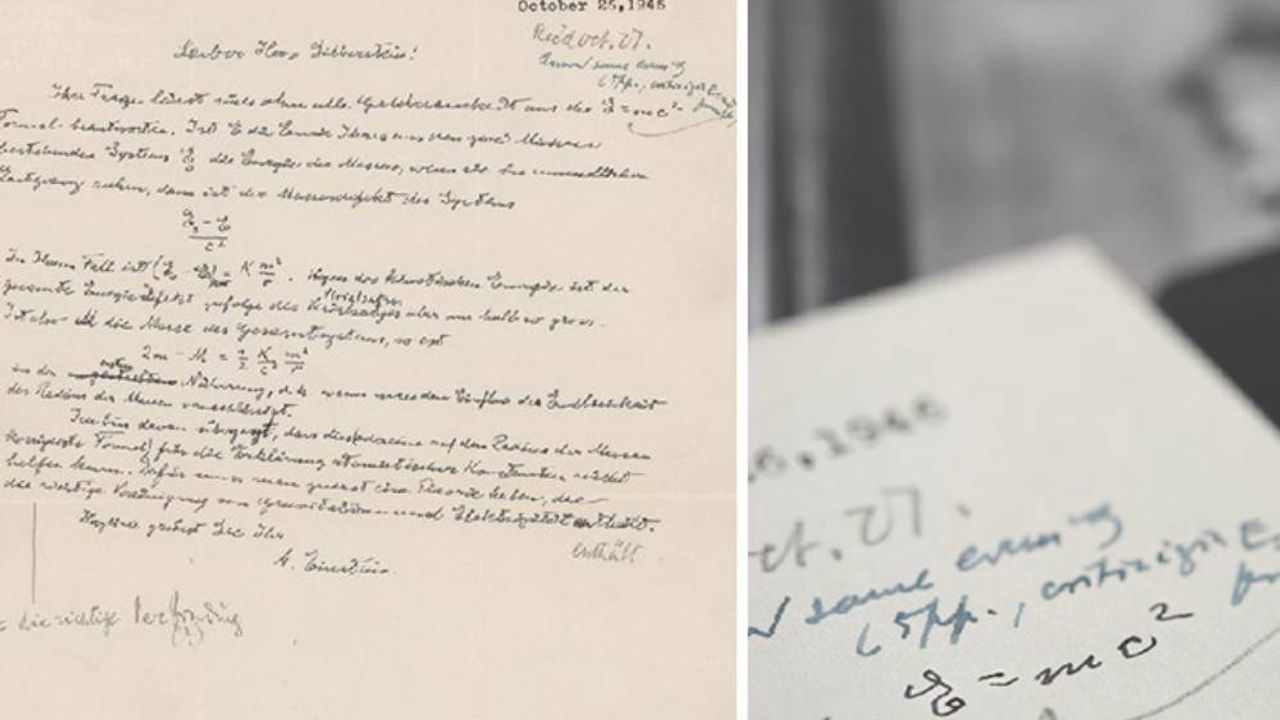 October 25, 1945
Rec'd Oct. 27.
same evening
(5pp., criticizig E.
Lieber Herr Silberstein!
Ihre Frage lässt sich ohne alle Gelehrsamkeit aus der E = mc²
Formel beantworten. Ist E die Energie Ihres aus den zwei Massen
bestehenden Systems E₀ die Energie der Massen, wenn sie in unendlicher
ruhen, dann ist der Massendefekt des Systems
E₀ - E
c²
In Ihrem Fall ist (E₀ - E) = K m²/r. Wegen der kinetischen Energie ist der
gesamte Energiedefekt zufolge des aber nur halb so gross.
Ist also M die Masse des Gesamtsystems, so ist
2m - M = ½ K/c² m²/r
in der erster Näherung, d.h. wenn man den Einfluss der Endlichkeit
des Radius der Massen vernachlässigt.
Ich bin davon überzeugt, dass auf dem Radius der Massen
Formel) für die Erklärung atomistischer Konstanten nicht
helfen kann. Dafür muss man zuerst eine Theorie haben, die
die richtige Vereinigung von Gravitation und Elektrizität enthält.
enthält
grüsst Sie Ihr
A. Einstein.
= die richtige
25, 1945
ct. 27.
same evening
(5pp., criticizig E.
E = mc²